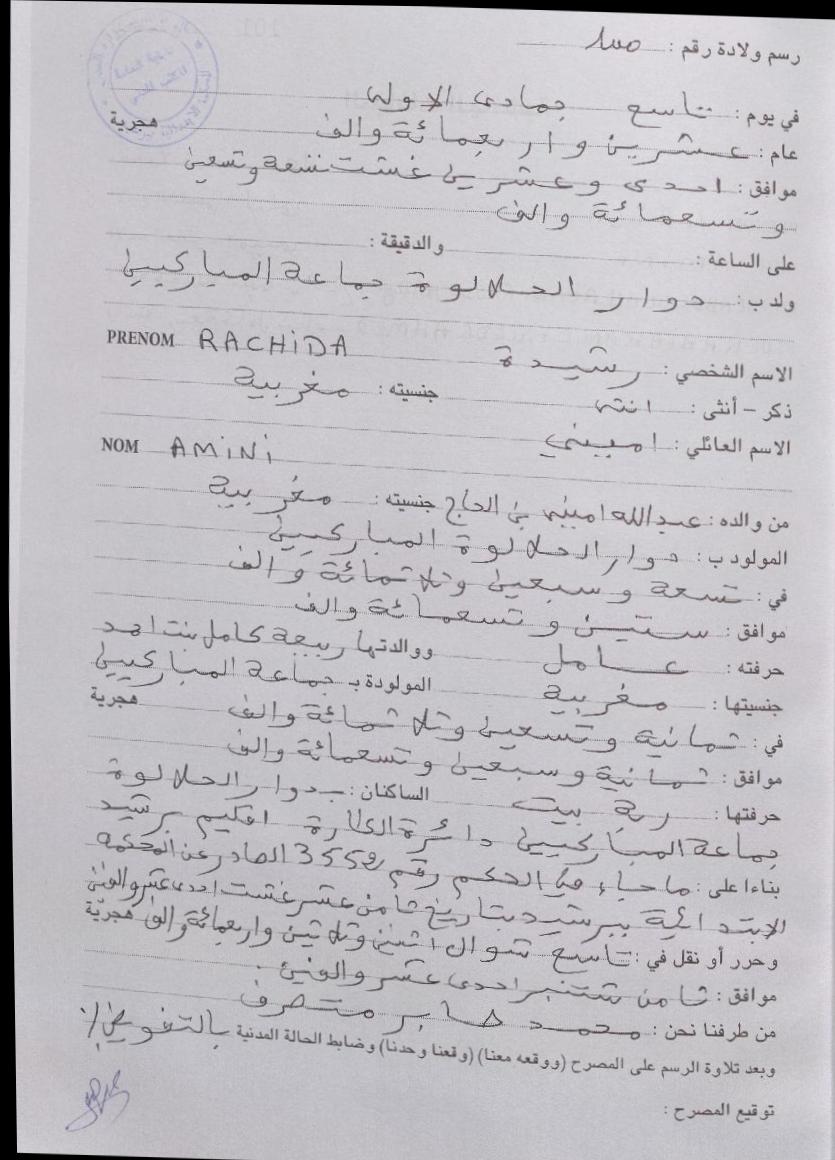 رسم ولادة رقم :
في يوم : تاسع جمادى الاولى
عام : عشرين و اربعمائة والف هجرية
موافق : احدى وعشرين غشت تسعة وتسعين
وتسعمائة والف
على الساعة : والدقيقة :
ولد ب : دوار الحلالوة جماعة المباركيين
الاسم الشخصي : رشيدة PRENOM RACHIDA
ذكر – أنثى : انثى جنسيته : مغربية
الاسم العائلي : اميني
NOM AMINI
من والده : عبدالله اميني بن الحاج جنسيته : مغربية
المولود ب : دوار الحلالوة المباركيين
في : تسعة وسبعين وثلاثمائة والف
موافق : ستين وتسعمائة والف
حرفته : عامل ووالدتها ربيعة كامل بنت احمد
جنسيتها : مغربية المولودة ب جماعة المباركيين
في : ثمانية وتسعين وثلاثمائة والف هجرية
موافق : ثمانية وسبعين وتسعمائة والف
حرفتها : ربة بيت الساكنان : بدوار الحلالوة
جماعة المباركيين دائرة الكارة اقليم برشيد
بناءا على : ماجاء في الحكم رقم 3559 الصادر عن المحكمة
الابتدائية ببرشيد بتاريخ ثامن عشر غشت احدى عشر والفين
وحرر أو نقل في : تاسع شوال اثنين وثلاثين واربعمائة والف هجريّة
موافق : ثامن شتنبر احدى عشر والفين .
من طرفنا نحن : محمد صابر متصرف
وبعد تلاوة الرسم على المصرح (ووقعه معنا) (وقعنا وحدنا) وضابط الحالة المدنية بالتفويض /.
توقيع المصرح :